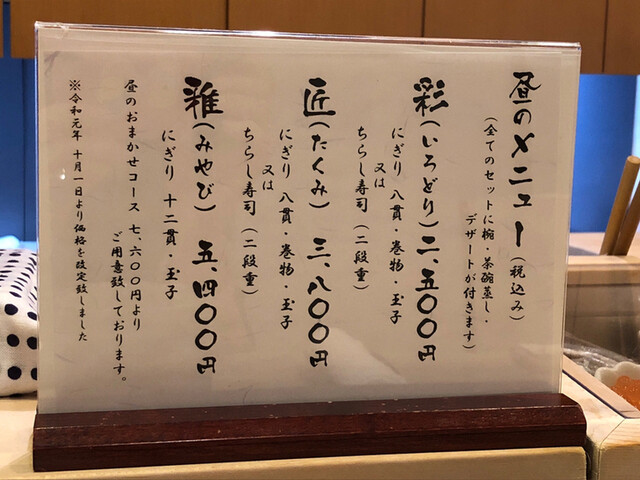 昼のメニュー（税込み）
（全てのセットに椀・茶碗蒸し・
デザートが付きます）
彩（いろどり）二、五〇〇円
にぎり 八貫・巻物・玉子
又は
ちらし寿司（二段重）
匠（たくみ）三、八〇〇円
にぎり 八貫・巻物・玉子
又は
ちらし寿司（二段重）
雅（みやび）五、四〇〇円
にぎり 十二貫・玉子
昼のおまかせコース 七、六〇〇円より
ご用意致しております。
※令和元年 十月一日より価格を改定致しました